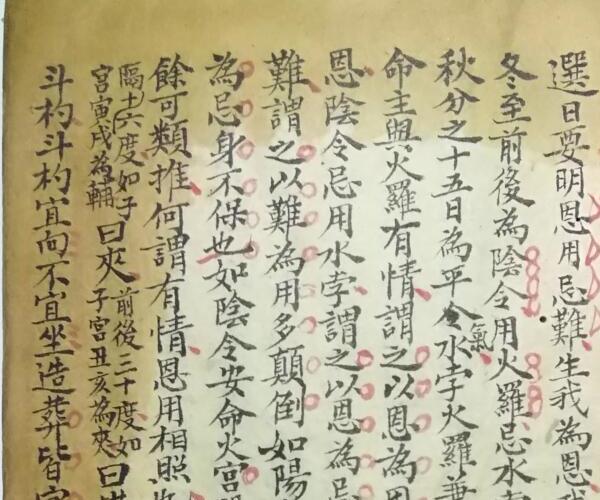 選日要明恩用忌難生我為恩
冬至前後為陰令用火羅忌水
秋分之十五日為平氣令水孛火羅兼
命主與火羅有情謂之以恩為用
恩陰令忌用水孛謂之以恩為忌
難謂之以難為用多顛倒如陽
為忌身不保也如陰令安命火宮
餘可類推何謂有情恩用相照
隔十六度如子
宮寅戌為輔
曰夾
前後三十度如
子宮丑亥為夾
曰
斗杓斗杓宜向不宜坐造葬皆宜